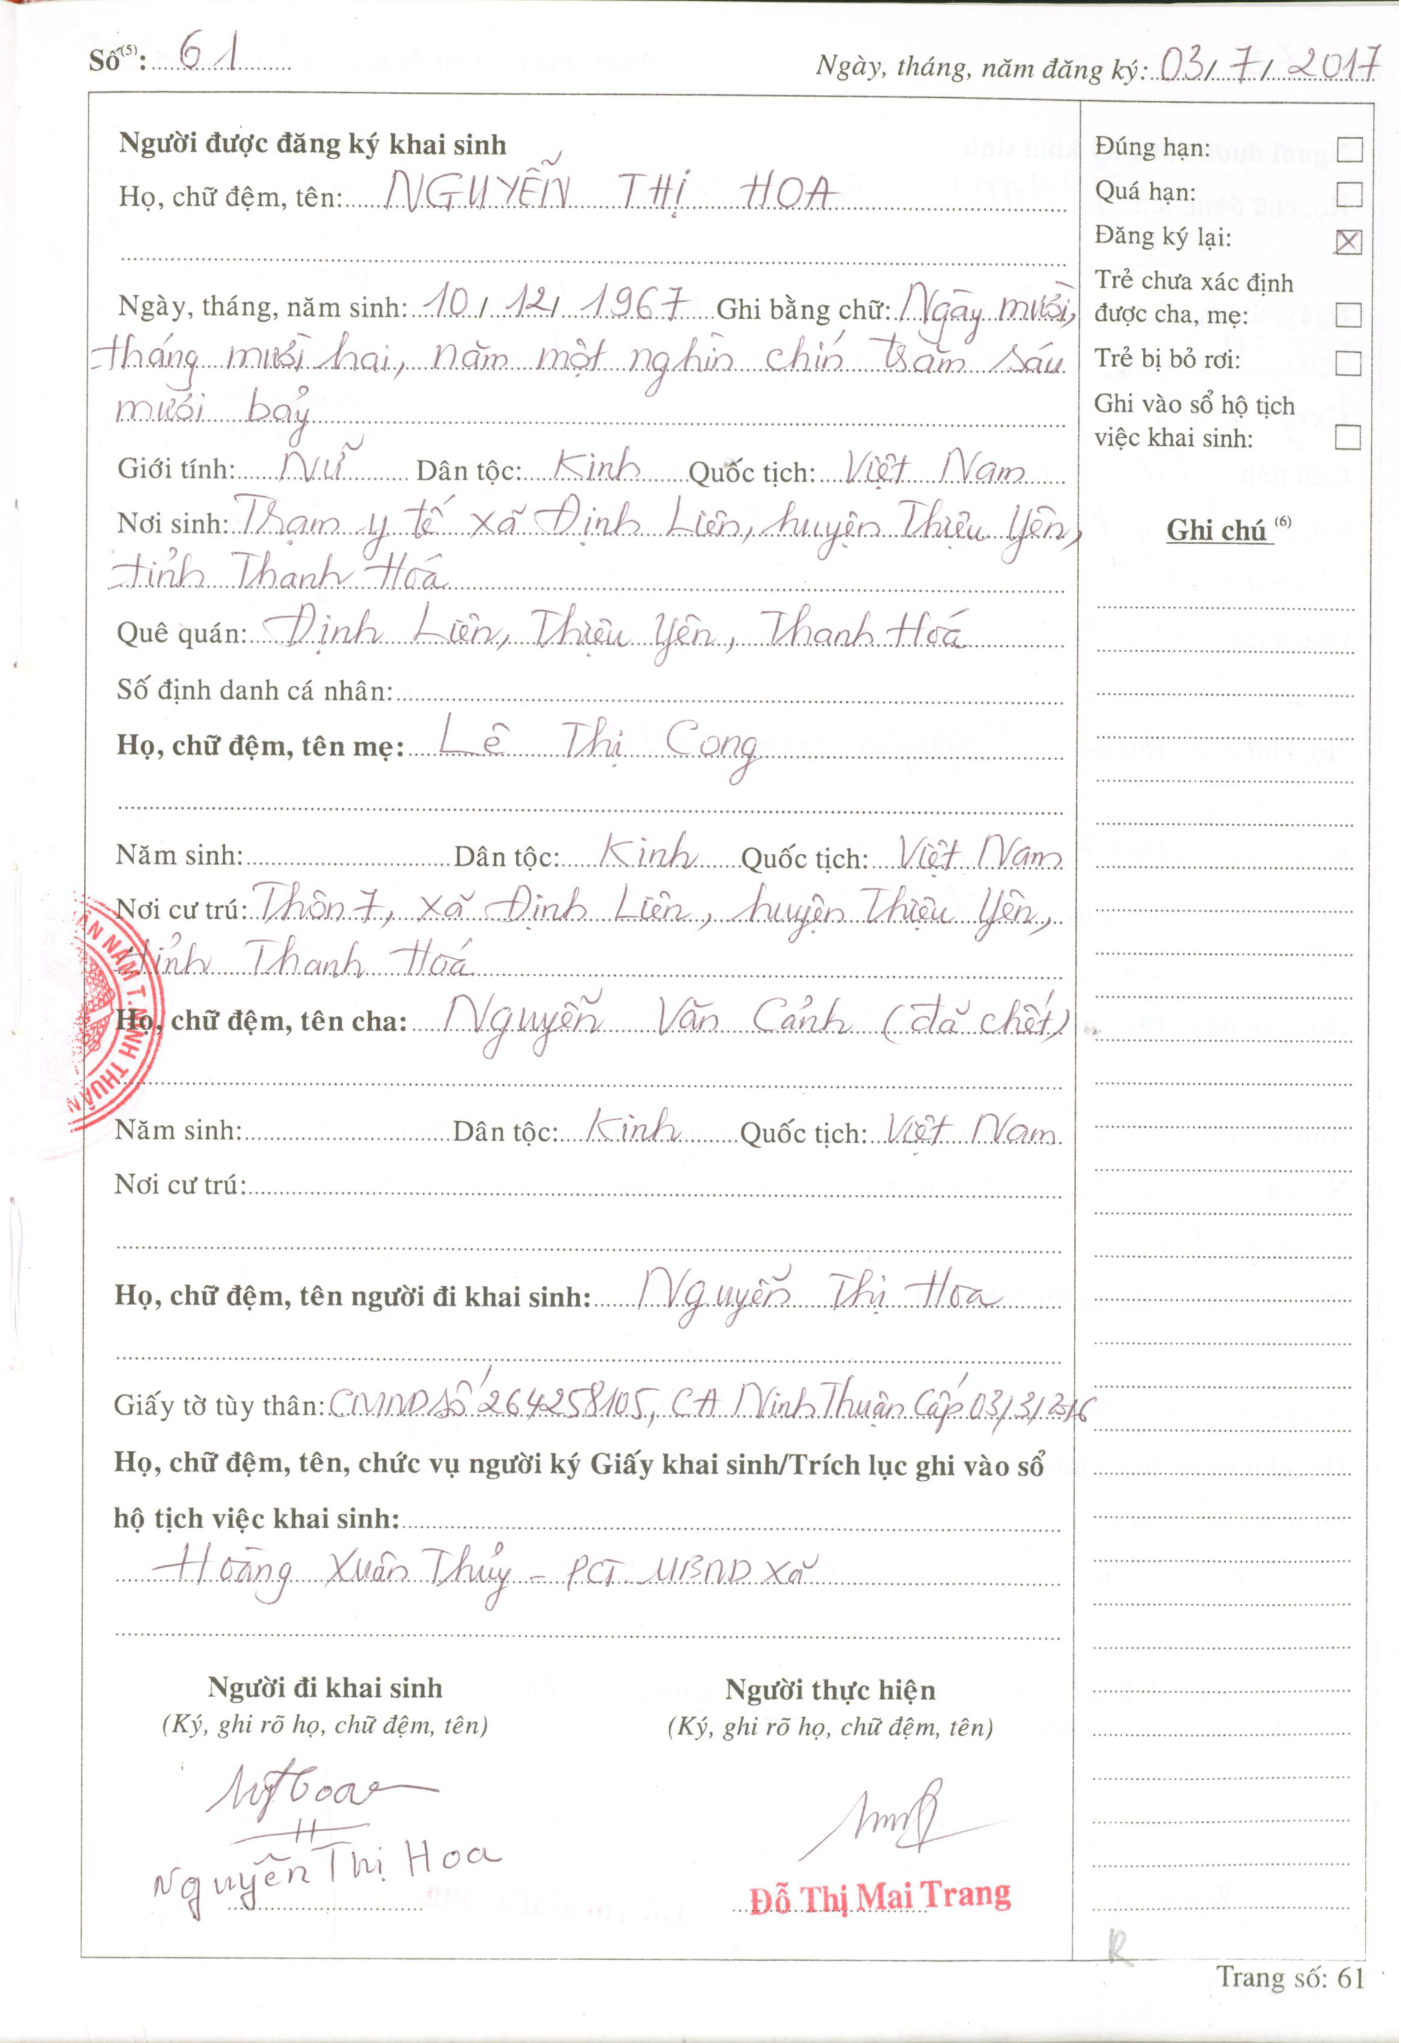 Số(5): 61
Ngày, tháng, năm đăng ký: 03/7/2017
Người được đăng ký khai sinh
Họ, chữ đệm, tên: NGUYỄN THỊ HOA
Ngày, tháng, năm sinh: 10/12/1967 Ghi bằng chữ: Ngày mười,
tháng mười hai, năm một nghìn chín trăm sáu
mươi bảy
Giới tính: Nữ Dân tộc: Kinh Quốc tịch: Việt Nam
Nơi sinh: Trạm y tế xã Định Liên, huyện Thiệu Yên,
tỉnh Thanh Hoá
Quê quán: Định Liên, Thiệu Yên, Thanh Hoá
Số định danh cá nhân:
Họ, chữ đệm, tên mẹ: Lê Thị Cong
Năm sinh: Dân tộc: Kinh Quốc tịch: Việt Nam
Nơi cư trú: Thôn 7, xã Định Liên, huyện Thiệu Yên,
tỉnh Thanh Hoá
Họ, chữ đệm, tên cha: Nguyễn Văn Cảnh (đã chết)
Năm sinh: Dân tộc: Kinh Quốc tịch: Việt Nam
Nơi cư trú:
Họ, chữ đệm, tên người đi khai sinh: Nguyễn Thị Hoa
Giấy tờ tùy thân: CMND số 264258105, CA Ninh Thuận cấp 03/3/2016
Họ, chữ đệm, tên, chức vụ người ký Giấy khai sinh/Trích lục ghi vào sổ
hộ tịch việc khai sinh:
Hoàng Xuân Thủy - PCT. UBND xã
Người đi khai sinh
(Ký, ghi rõ họ, chữ đệm, tên)
Nguyễn Thị Hoa
Người thực hiện
(Ký, ghi rõ họ, chữ đệm, tên)
Đỗ Thị Mai Trang
Đúng hạn:
Quá hạn:
Đăng ký lại: X
Trẻ chưa xác định
được cha, mẹ:
Trẻ bị bỏ rơi:
Ghi vào sổ hộ tịch
việc khai sinh:
Ghi chú (6)
NAM T. NINH THUẬN
R
Trang số: 61